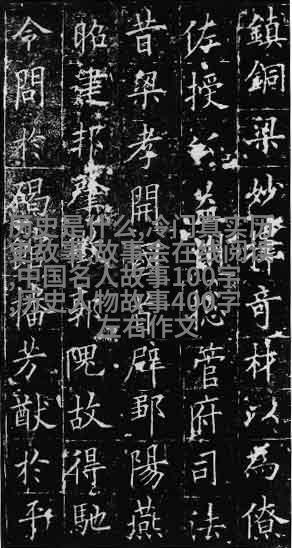 鎮銅梁妙擇奇材以為僚
佐授公益州總管府司法
昔梁孝開國首辟鄒陽燕
昭建邦肇郭隗故得馳
令問於碣播芳猷於平
历史是什么,冷门真实历
史故事,故事会在线阅读
,中国名人故事100字
,历史人物故事400字
左右作文